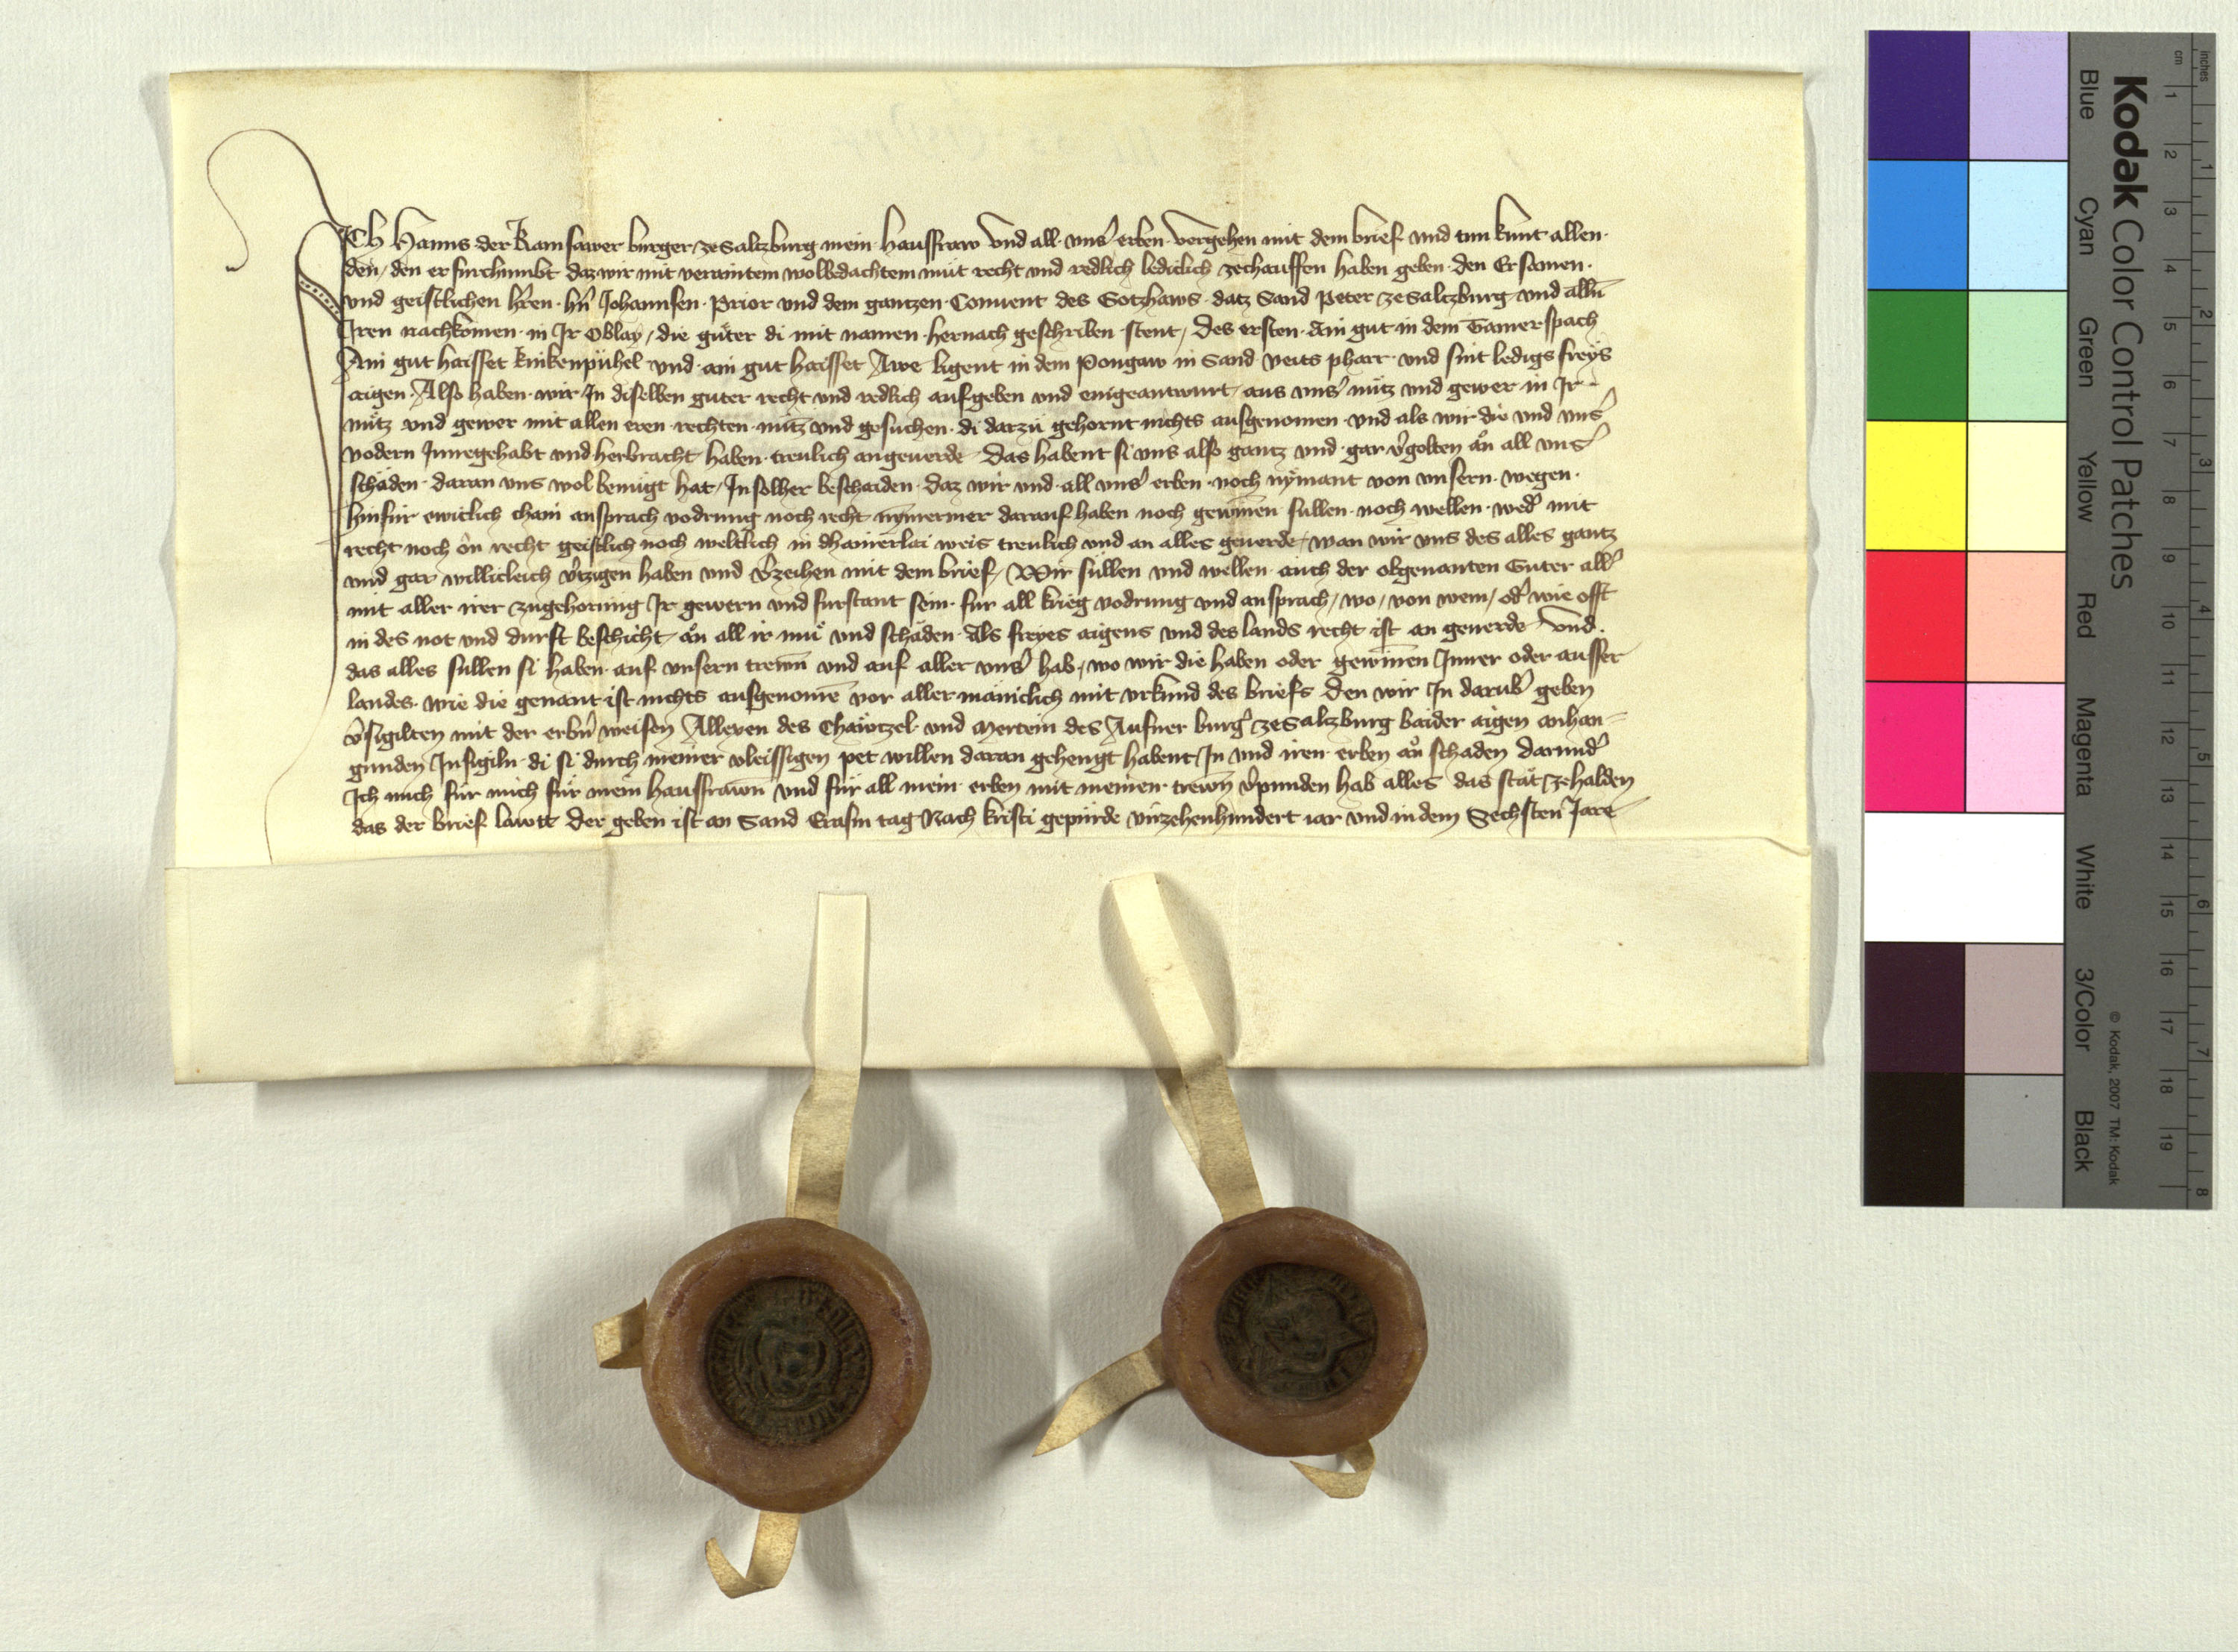 ICh Hanns der Ramsawer burger ze Saltzburg mein hausfraw Vnd all vnsʼ erben vergehen mit dem brief vnd tun kunt allen
den, den er furchumbt daz wir mit veraintem wolbedachtem müt recht vnd redlich lediclich zechauffen haben geben den Ersamen
vnd geistlichen hʼren hʼn Johannsen Prior vnd dem gantzen Conuent des Gotzhaws datz Sand Peter ze Saltzburg vnd alln̄
Iren nachkomen in Ir Oblay, die güter di mit namen hernach geschriben stent, Des ersten Ain gut in dem Gamerspach
Ain gut haisset knikenpühel vnd ain gut haisset Awe ligent in dem Pongaw in Sand Veits pharr vnd sint ledigs freys
aigen Also haben wir In diselben guter recht vnd redlich aufgeben vnd eingeantwurt aus vnsʼ nütz vnd gewer in Ir
nütz vnd gewer mit allen eren rechten nütz vnd gesuchen di darzü gehornt nichts ausgenomen vnd als wir die vnd vnsʼ
vodern Innegehabt vnd herbracht haben treulich angeuerde Das habent si vns also gantz vnd gar vʼgolten an all vnsʼ
schäden daran vns wol benügt hat, In solher beschaiden daz wir vnd all vnsʼ erben noch nymant von vnsern wegen
hinfür ewiclich chain ansprach vodrung noch recht nymermer darauf haben noch gewinen süllen noch wellen wedʼ mit
recht noch ön recht geistlich noch weltlich in dhainerlai weis treulich vnd an alles geuerde, wan wir vns des alles gantz
vnd gar willicleich vʼtzigen haben vnd vʼzeihen mit dem brief, Wir süllen vnd wellen auch der obgenanten Guter allʼ
mit aller irer zugehorung Ir gewern vnd furstant sein fur all krieg vodrung vnd ansprach, wo, von wem, odʼ wie offt
in des not vnd durft beschicht an all ir mü vnd schäden Als freyes aigens vnd des lands recht ist an geuerde Vnd
das alles süllen si haben auf vnsern trewn̄ vnd auf aller vnsʼ hab, wo wir die haben oder gewinen Inner oder ausser
landes wie die genant ist nichts ausgenomē vor aller mäniclich mit vrkund des briefs Den wir In darubʼ geben
vʼsigilten mit der erbnʼ weisen Allexen des Chäwtzel vnd Mertein des Aufner burgʼ ze Saltzburg baider aigen anhan=
gunden Insigiln di si durch meiner vleissigen pet willen daran gehengt habent In vnd iren erben an schaden darundʼ
Ich mich für mich für mein hausfrawn̄ vnd für all mein erben mit meinen trewn̄ vʼpunden hab alles das stät zehalden
das der brief lawtt Der geben ist an Sand Erasm tag Nach kristi gepürde virzehenhundert iar vnd in dem Sechsten Jare
Kodak Color Control Patches
Blue Cyan Green Yellow Red Magenta White 3/Color Black
© Kodak, 2007 TM: Kodak
inches 1 2 3 4 5 6 7 8
cm 1 2 3 4 5 6 7 8 9 10 11 12 13 14 15 16 17 18 19